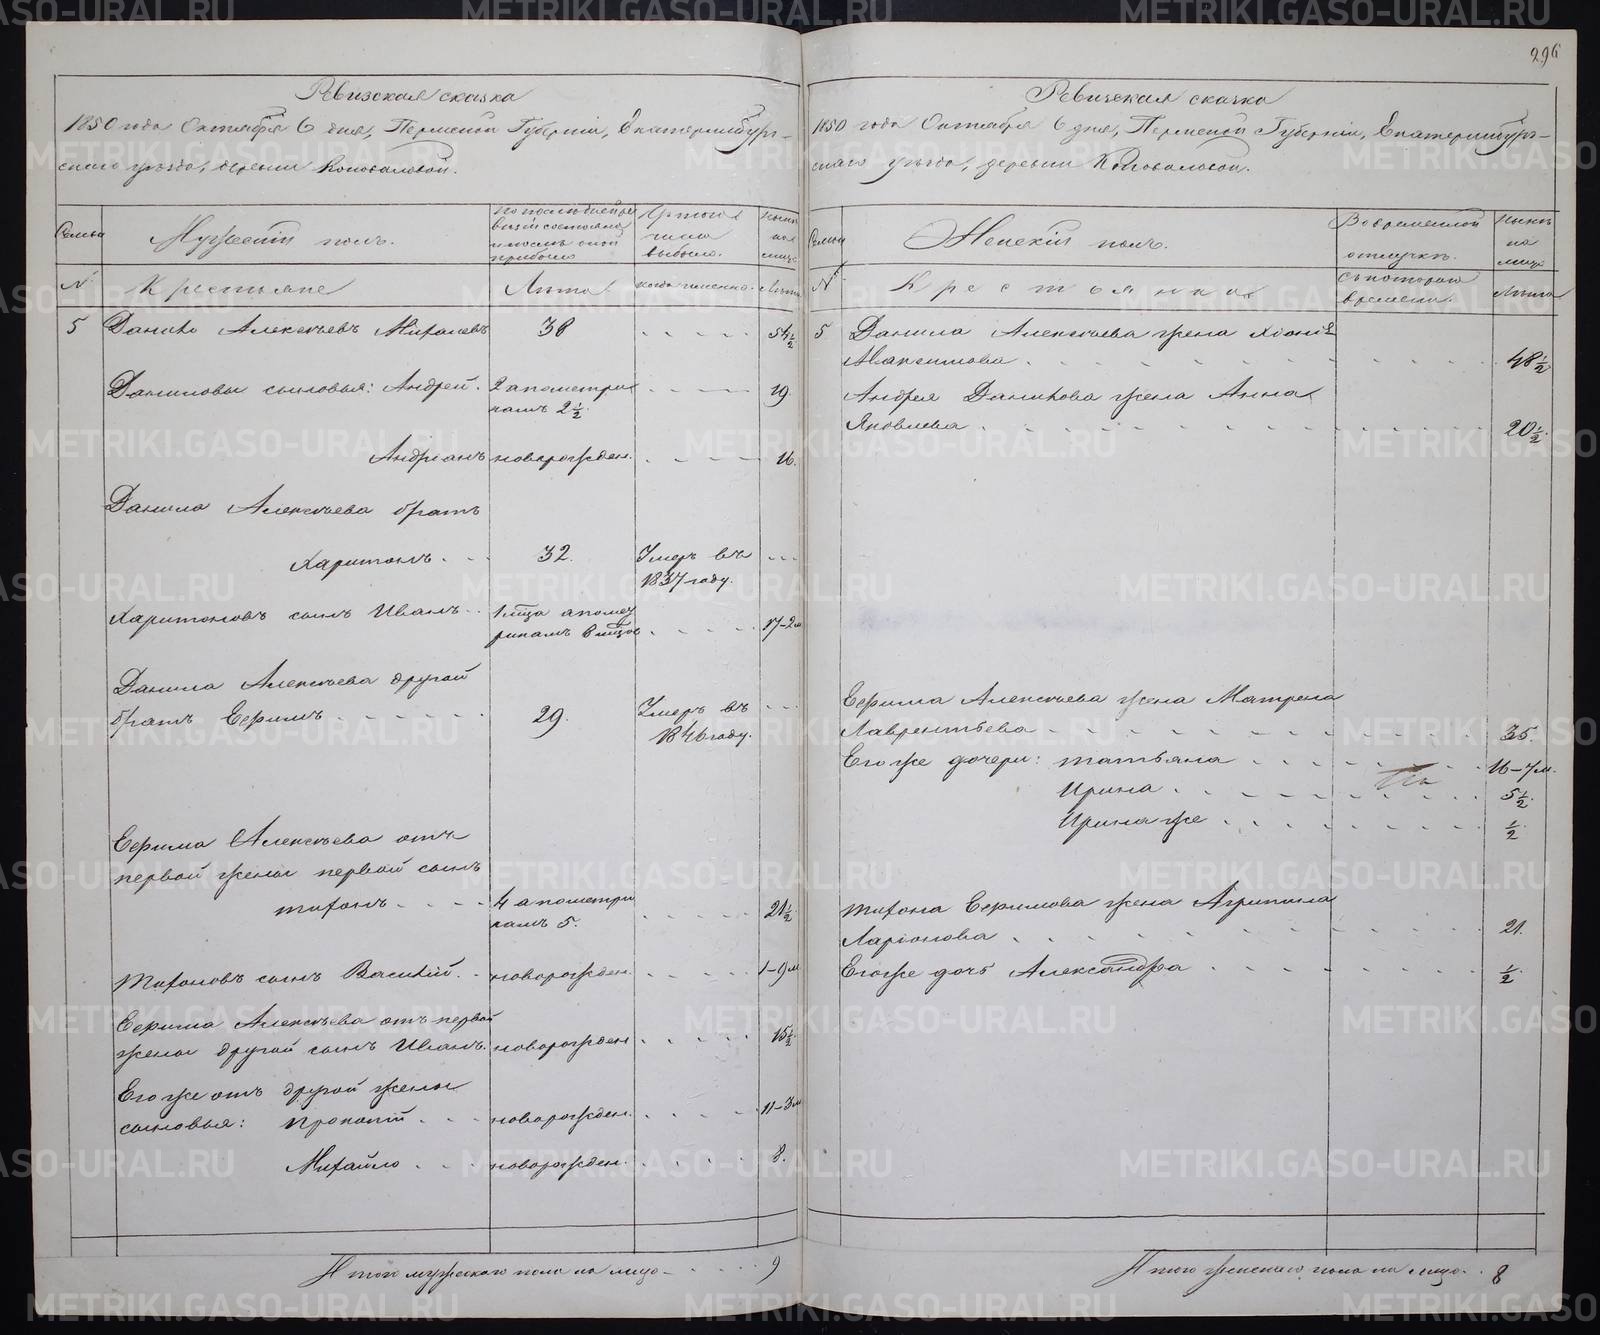 296
Ревизская сказка
1850 года Октября 6 дня, Пермской Губернiи, Екатеринбург-
скаго уѣзда, деревни Коноваловой.
Семьи
Мужескiй полъ.
По последней ре
визiи состояло
и послѣ оной
прибыло
Изъ того
числа
выбыло.
Нынѣ
на
лицо
№
Крестьяне
Лѣта
когда именно.
Лѣта
5 Данило Алексѣевъ Михалевъ 38 54½
Даниловы сыновья: Андрей. 2 а по метри
камъ 2½. 19.
Андрiанъ новорожден. 16.
Данила Алексѣева братъ
Харитонъ 32. Умеръ въ
1837 году.
Харитоновъ сынъ Иванъ 1 м-ца а по мет
рикамъ 6 м-цов 17-2 м
Данила Алексѣева другой
братъ Ефимъ 29. Умеръ въ
1846 году.
Ефима Алексѣева отъ
первой жены первой сынъ
Тихонъ 4 а по метри
камъ 5. 21½
Тихоновъ сынъ Василiй новорожден. 1-9 м
Ефима Алексѣева отъ первой
жены другой сынъ Иванъ. новорожден 15½
Его же отъ другой жены
сыновья: Прокопiй новорожден. 11-3 м
Михайло новорожден. 8.
Итого мужескаго пола на лицо 9
Ревизская сказка
1850 года Октября 6 дня, Пермской Губернiи, Екатеринбург-
скаго уѣзда, деревни Коноваловой.
Семьи
Женскiй полъ.
Во временной
отлучкѣ.
Нынѣ
на
лицо
№
Крестьянки
Съ котораго
времени.
Лѣта
5 Данила Алексѣева жена Хiонiя
Максимова 48½
Андрея Данилова жена Анна
Яковлева 20½.
Ефима Алексѣева жена Матрена
Лаврентьева 35.
Его же дочери: Татьяна 16-7 м.
Ирина 5½.
Ирина же ½
Тихона Ефимова жена Агрипина
Ларiонова 21.
Его же дочь Александра ½
Итого женскаго пола на лицо 8
METRIKI.GASO-URAL.RU